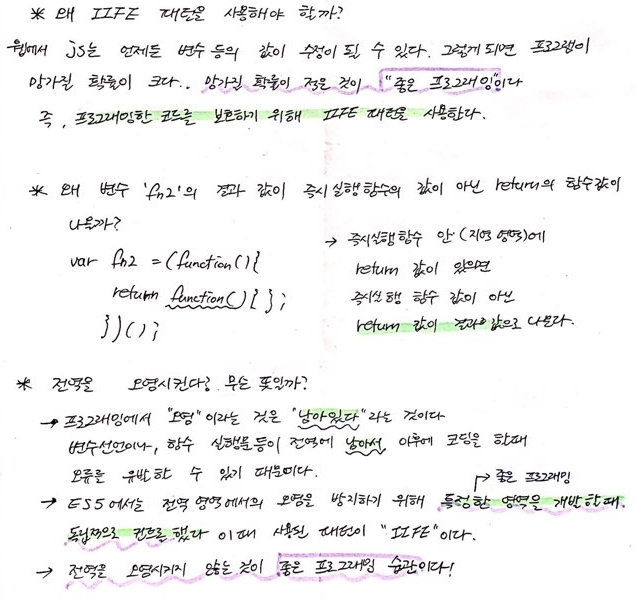 * 왜 IIFE 패턴을 사용해야 할까?
웹에서 js는 언제든 변수 등의 값이 수정이 될 수 있다. 그렇게 되면 프로그램이
망가질 확률이 크다.. 망가질 확률이 적은 것이 "좋은 프로그래밍"이다
즉, 프로그래밍한 코드를 보호하기 위해 IIFE 패턴을 사용한다.
* 왜 변수 'fn2'의 결과 값이 즉시실행함수의 값이 아닌 return의 함수값이
나올까?
var fn2 = (function(){
return function(){ };
})();
→ 즉시실행함수 안(지역 영역)에
return 값이 있으면
즉시실행 함수 값이 아닌
return 값이 결과값으로 나온다.
* 전역을 오염시킨다? 무슨 뜻일까?
→ 프로그래밍에서 "오염"이라는 것은 "남아있다"라는 것이다
변수선언이나, 함수 실행문등이 전역에 남아서, 이후에 코딩을 할때
오류를 유발할 수 있기 때문이다.
↱ 좋은 프로그래밍
→ ES5에서는 전역 영역에서의 오염을 방지하기 위해 특정한 영역을 개발할때,
독립적으로 컨트롤했다 이때 사용된 패턴이 "IIFE"이다.
→ 전역을 오염시키지 않는 것이 좋은 프로그래밍 습관이다!